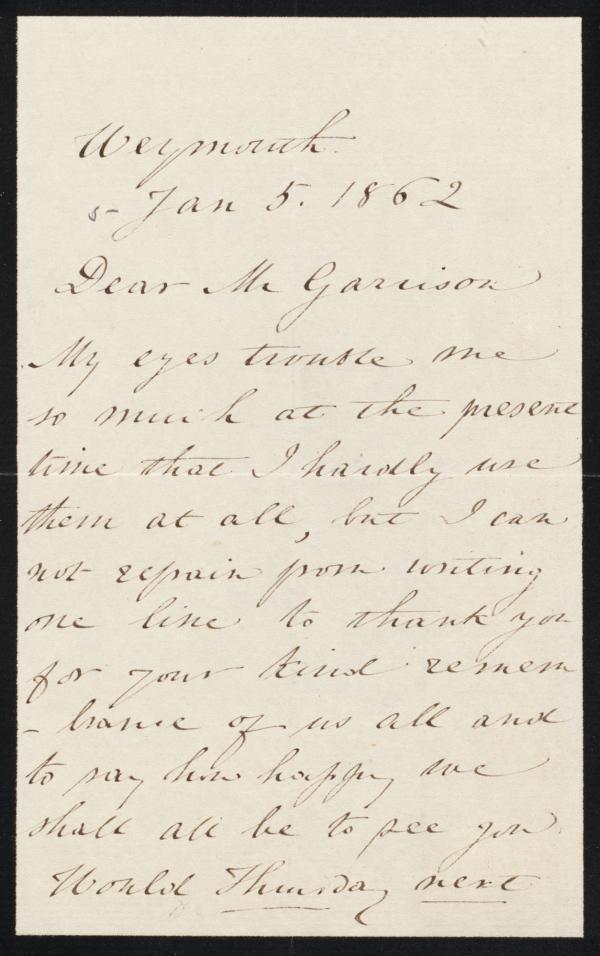 Weymouth.
5- Jan 5. 1862
Dear Mr Garrison
My eyes trouble me
so much at the present
time that I hardly use
them at all, but I can
not refrain from writing
one line to thank you
for your kind remem
- brance of us all and
to say how happy we
shall all be to see you.
Would Thursday next